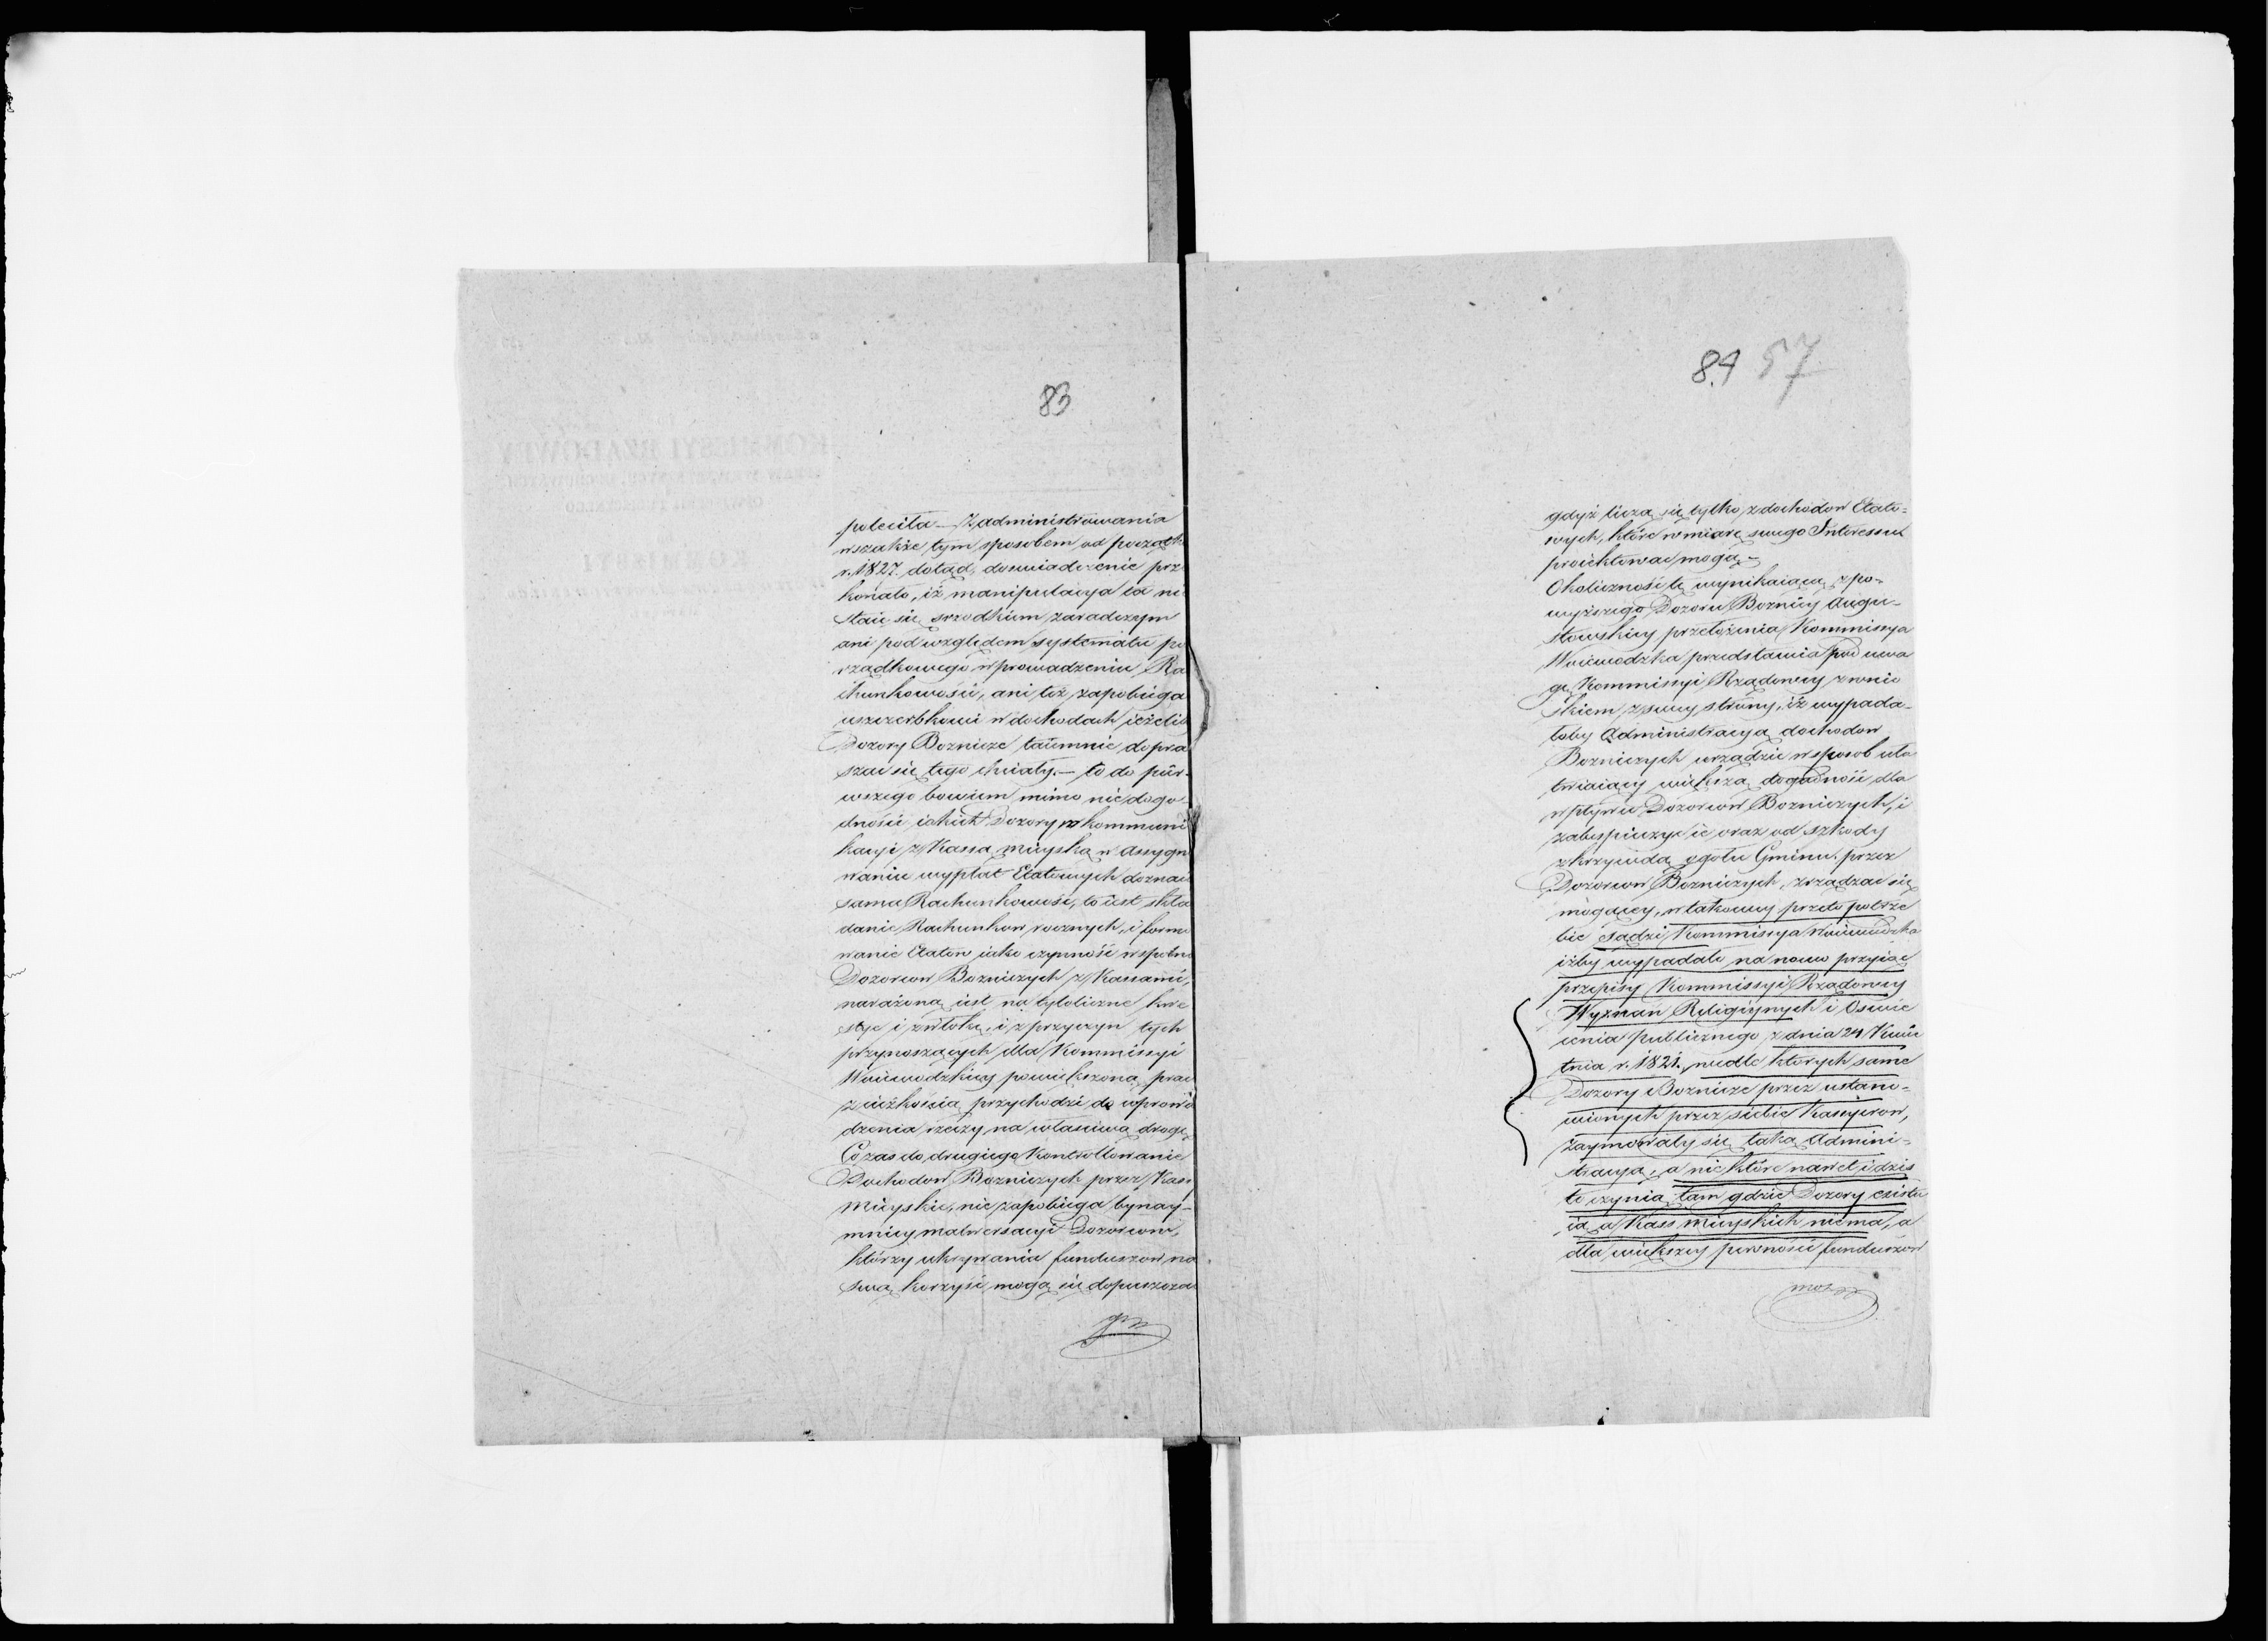 83
poleciła — Z administrowania
wszakże tym sposobem od począt
r. 1827. dotąd, doswiadczenie prze
konało, iż manipulacya ta nie
staie się srzodkiem zaradczym
ani pod względem systematu po
rządkowego w prowadzeniu Ra
chunkowości, ani też zapobiega
uszczerbkowi w dochodach ieżeliby
Dozory Boznicze taiemnie dopra
szać się tego chciały. — to do pier-
wszego bowiem mimo niedogo-
dności iakich Dozory w kommuni
kacyi z Kassą Mieyską w assygno
waniu wypłat Etatowych doznaią
sama Rachunkowość, to iest skła
danie Rachunkow rocznych, i formo
wanie Etatow iako czynność wspolna
Dozorcow Bozniczych z Kassami,
narażoną iest na tyloliczne kwe
stye i zwłokę, i z przyczyn tych
przynoszących dla Kommissyi
Woiewodzkiey powiększoną pracę
z cięzkością przychodzi do wprowa
dzenia rzeczy na własciwą drogę
Co zas do drugiego Kontrollowanie
Dochodow Bozniczych przez Kassy
Mieyskie, nie zapobiega bynay-
mniey malwersacyi Dozorcow,
którzy ukrywania funduszow na
swą korzyść mogą się dopuszczać
gdyż
84 57
gdyż liczą się tylko z dochodow Etato=
wych, które w miarę swego Interessu
proiektować mogą —
Okoliczność tę wynikaiącą z po-
wyższego Dozoru Boznicy Augu-
stowskiey przełożenia Kommissya
Woiewodzka przedstawia pod uwa
gę Kommissyi Rządowey z wnio
skiem z swey strony, iż wypada-
łoby Administracyą dochodow
Bozniczych urządzić w sposob uła
twiaiący większą dogodność dla
wpływu Dozorcow Bozniczych, i
zabespieczyć ie oraz od szkody
z krzywdą ogołu Gminu przez
Dozorcow Bozniczych, zrządzać się
mogącey, w takowey przeto potrze
bie sądzi Kommissya Woiewodzka
iżby wypadało na nowo przyiąć
przepisy Kommissyi Rządowey
Wyznań Religiynych i Oswie
cenia publicznego z dnia 24 Kwie
tnia r. 1821. wedle których same
Dozory Boznicze przez ustano-
wionych przez siebie Kassyerow,
zaymowały się taką Admini=
stracyą, a nie które nawet i dziś
to czynią tam gdzie Dozory exist
ią a Kass mieyskich niema, a
dla większey pewności funduszow